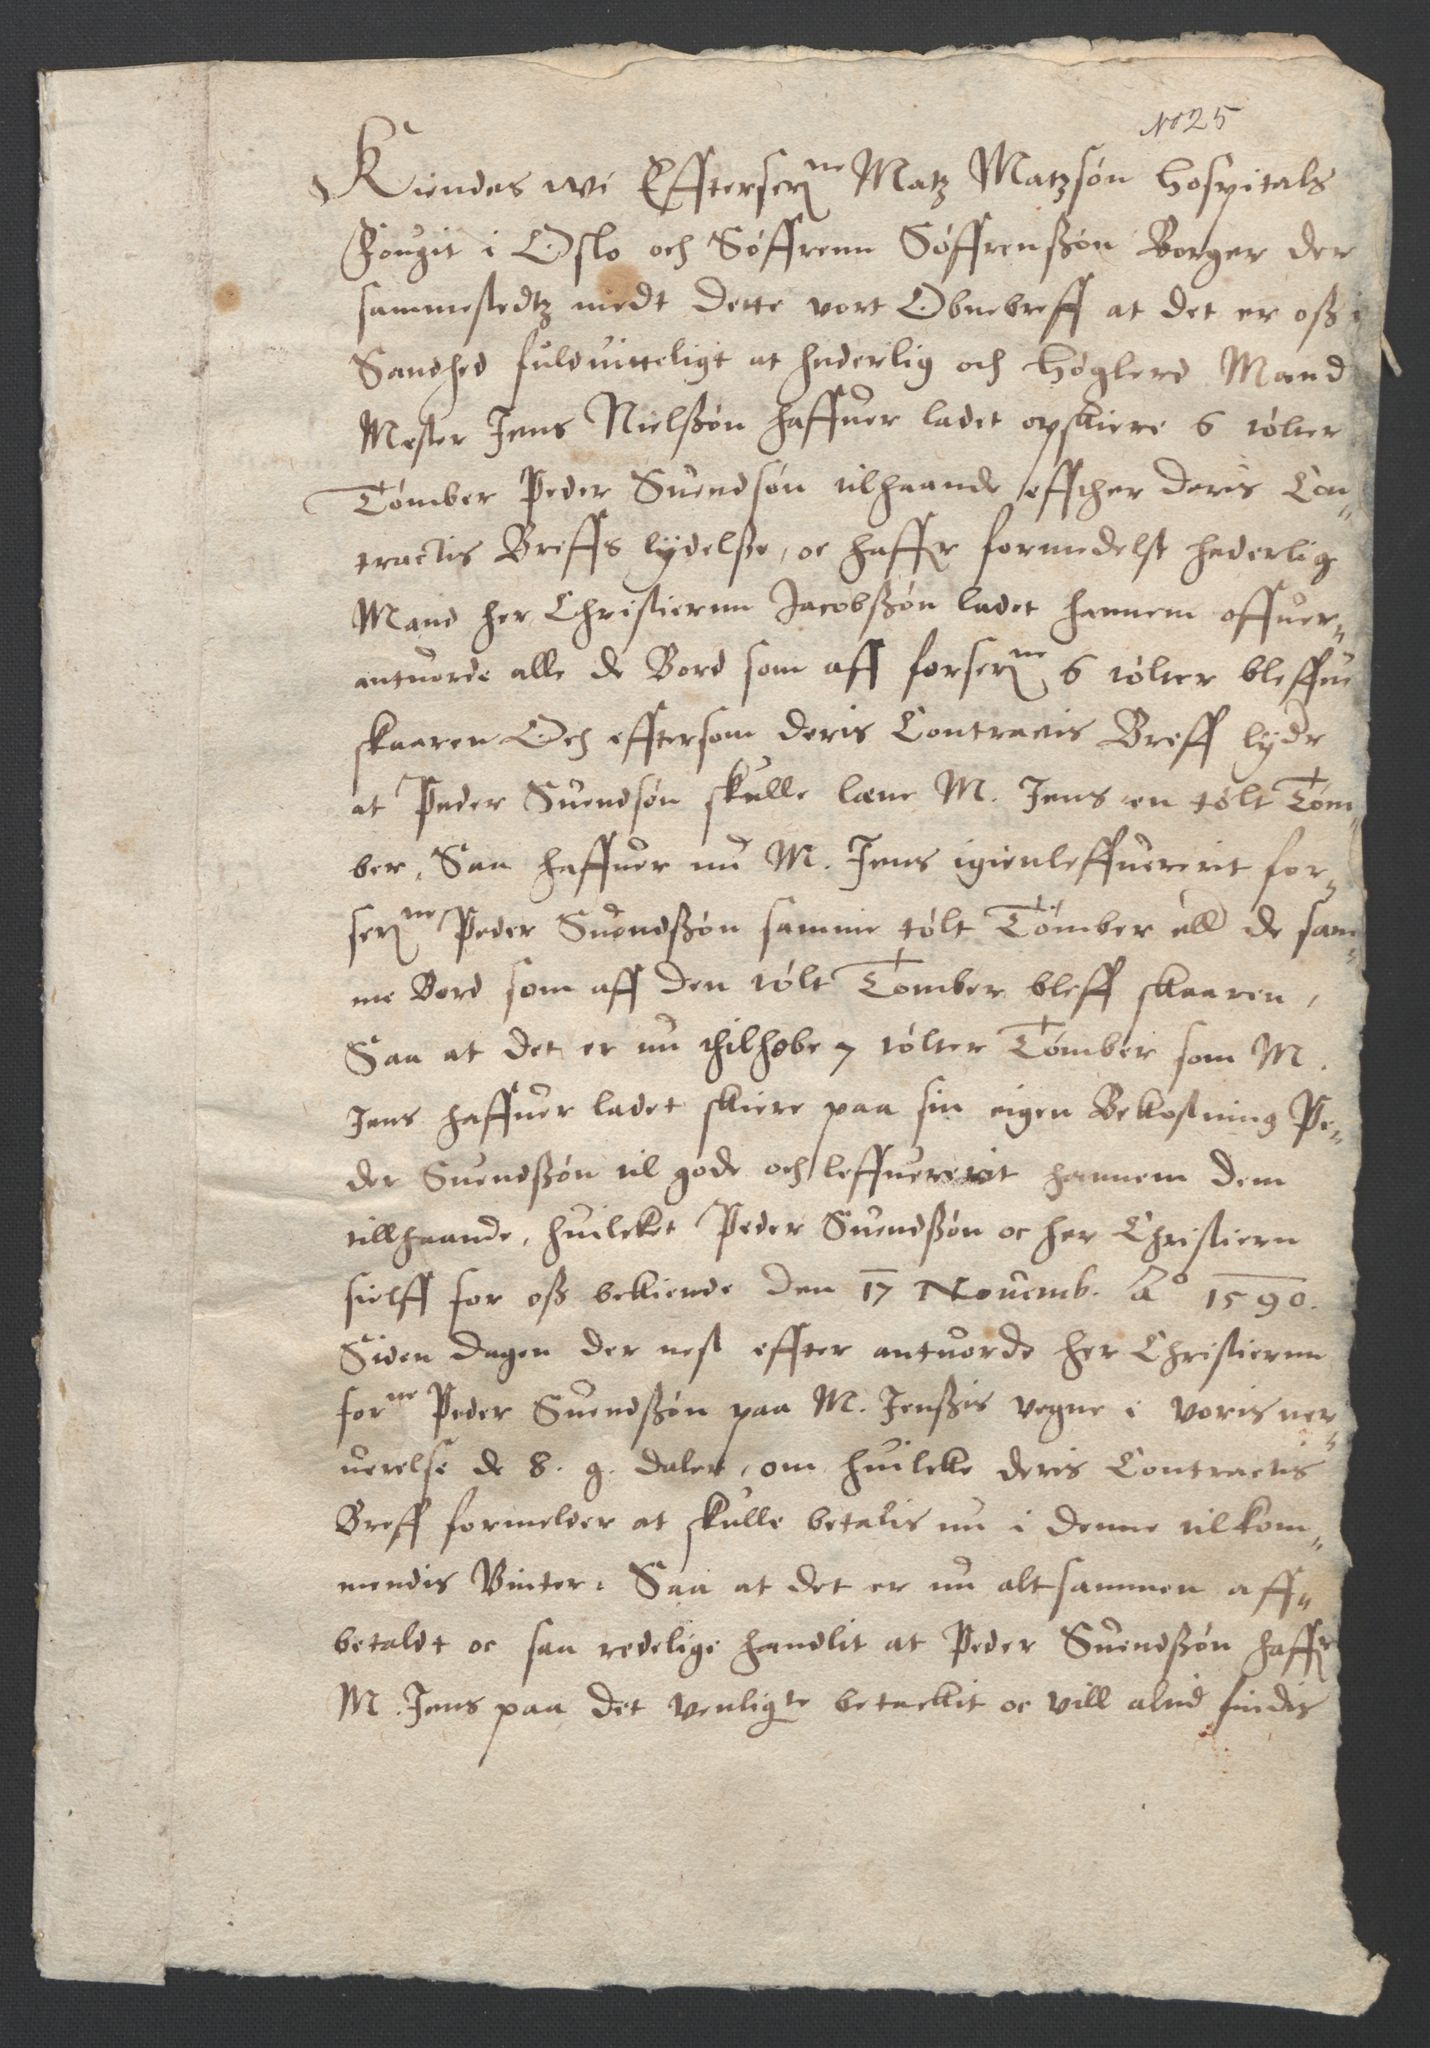 No 25
Kiendes wi Effterscrne Matz Matzsøn Hospitals
Fougit i Oslo och Søffrenn Søffrenßøn Borger der
sammestedtz medt dette vort Obnebreff at det er oß i
Sandhed fuldvitteligt at hederlig och Høglerd Mand
Mester Jens Nielßøn haffuer ladet opskiere 6 tølter
Tømber Peder Suendsøn tilhaande effther deris Con„
tractis Breffs lydelße, oc haffr formedelst hederlig
Mand her Christiernn Jacobßøn ladet hannem offuer„
antuorde alle de Bord som aff forscrne 6 tølter bleffue
skaaren Och efftersom deris Contractis Breff lyde
at Peder Suendsøn skulle laane M. Jens en tølt Tøm„
ber, Saa haffuer nu M. Jens igienleffuererit for„
scrne Peder Suendßøn samme tølt Tømber ell de sam„
me Bord som aff den tølt Tømber bleff skaaren,
Saa at det er nu thilhobe 7 tølter Tømber som M.
Jens haffuer ladet skiere paa sin eigen Bekostning Pe„
der Suendßøn til gode och leffuererit hannem dem
tillhaande, huilcket Peder Suendßøn oc her Christiern
sielff for oß bekiende den 17 Nouemb. Ao 1590.
Siden dagen der nest effter antuorde her Christiernn
forne Peder Suendßøn paa M. Jenßis vegne i voris ner„
uerelse de 8. g. daler, om huilcke deris Contractis
Breff formelder at skulle betalis nu i denne tilkom„
mendis Vinter: Saa at det er nu altsammen aff„
betaldt oc saa redelige handlit at Peder Suendßøn haffr
M. Jens paa det venligte betackit oc vill altid findis